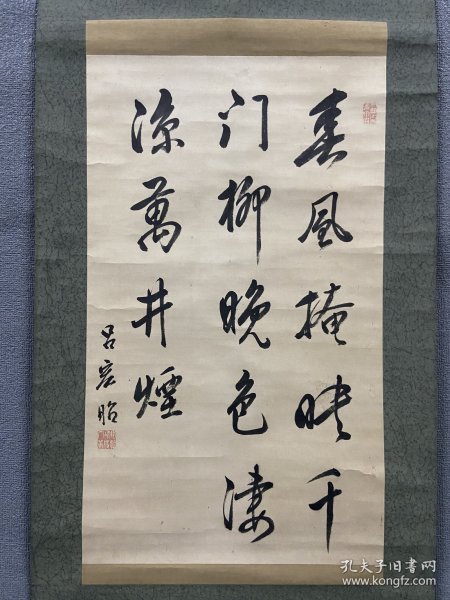 春风掩映千
门柳晚色凄
凉萬井煙
吕宏昭
孔夫子旧书网
www.kongfz.com